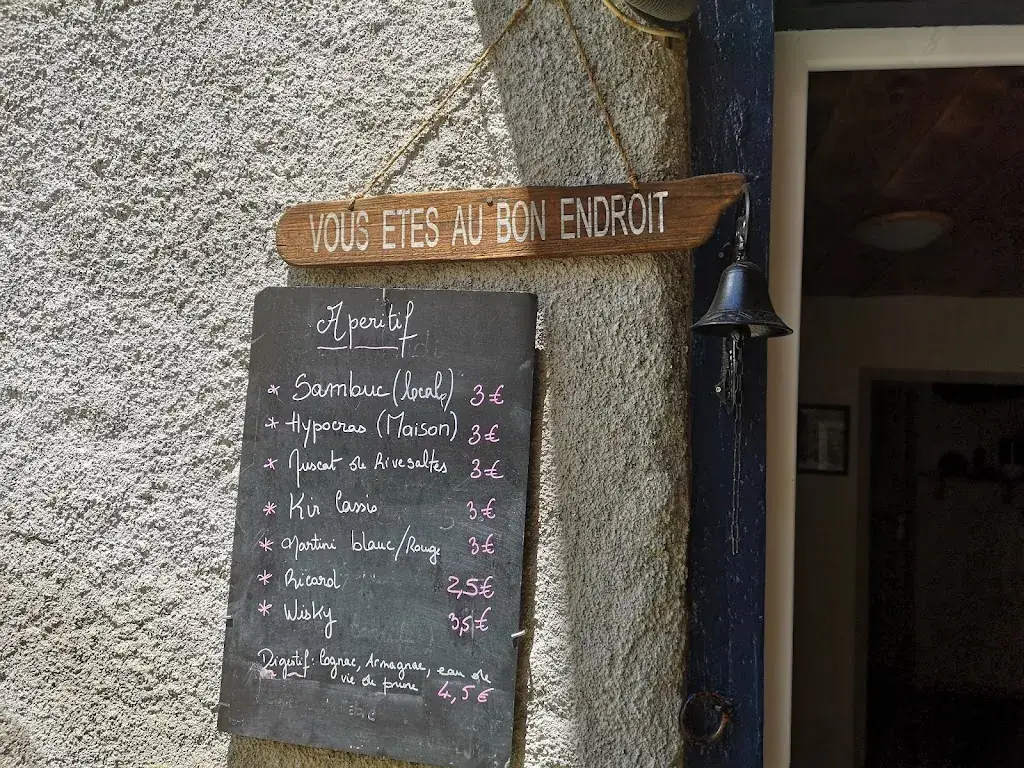 VOUS ETES AU BON ENDROIT
Aperitif
* Sambuc (local) 3€
* Hypocras (Maison) 3€
* Muscat de Rivesaltes 3€
* Kir Cassis 3€
* Martini blanc/Rouge 3€
* Ricard 2,5€
* Wisky 3,5€
Digestif: Cognac, Armagnac, eau de
vie de prune 4,5€